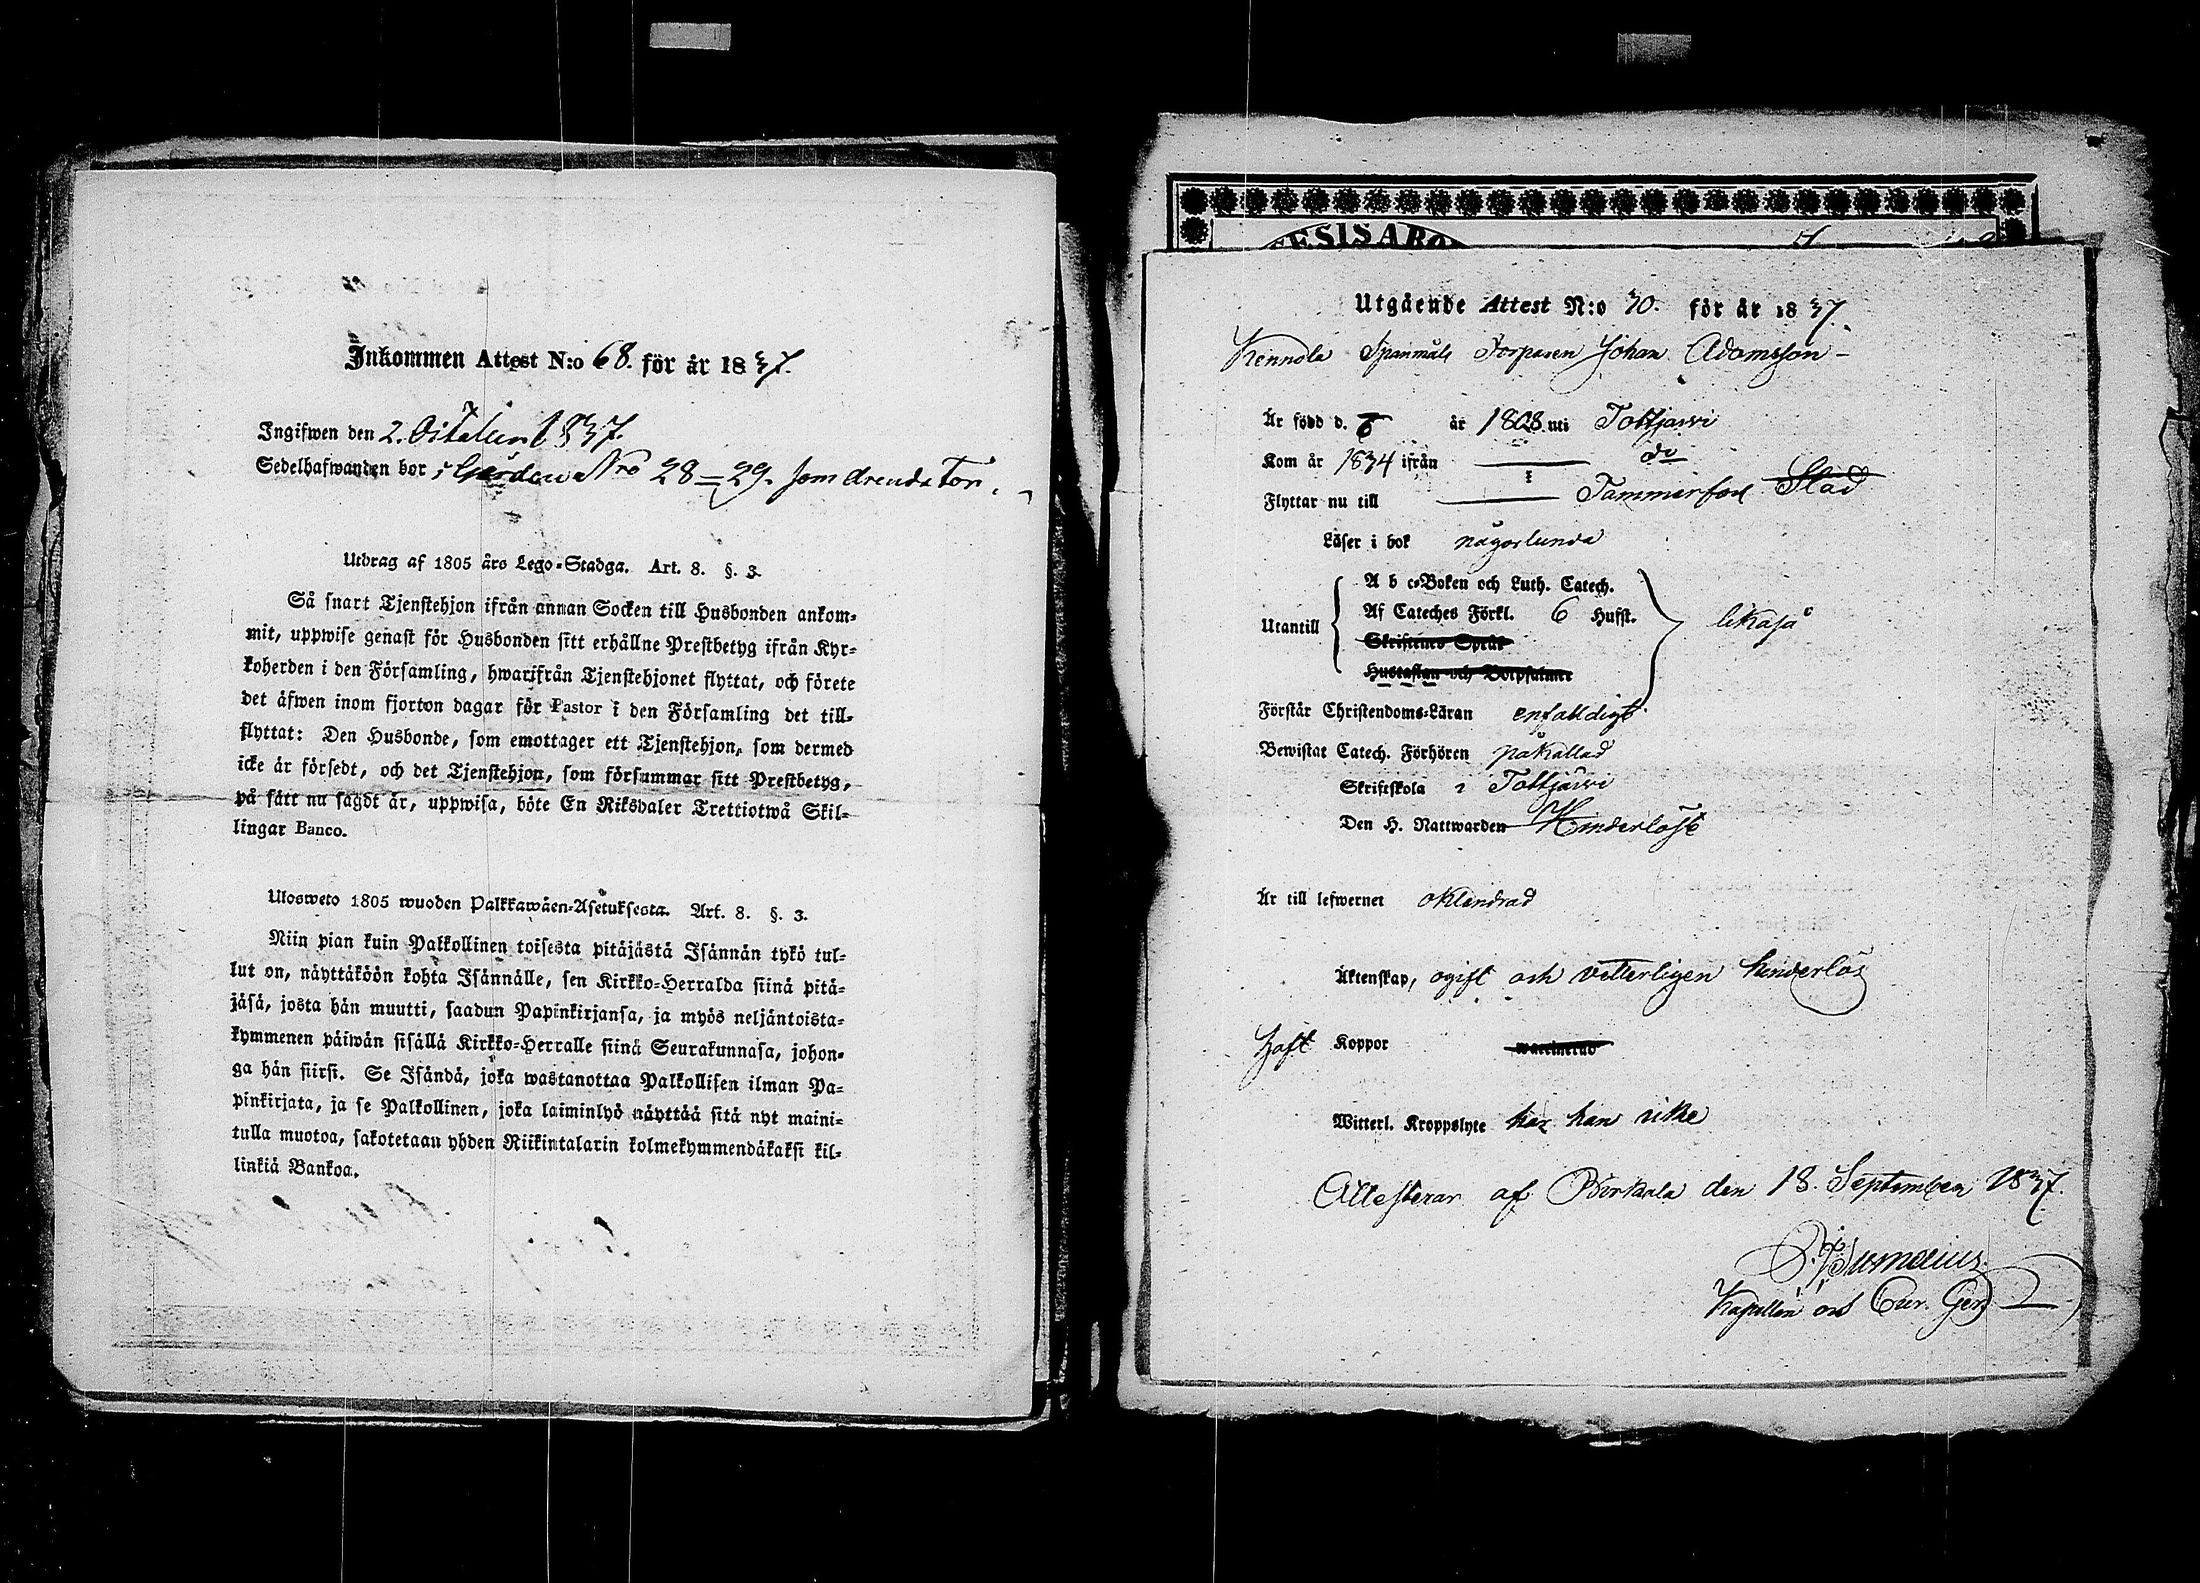 Inkommen Attest N:o 68. för år 1837.
Ingifwen den 2. October 1837.
Sedelhafwanden bor i Gården Nro 28=29. som Arendator.
Utdrag af 1805 års Lego-Stadga. Art. 8. §. 3.
Så snart Tjenstehjon ifrån annan Socken till Husbonden ankom-
mit, uppwise genast för Husbonden sitt erhållne Prestbetyg ifrån Kyr-
koherden i den Församling, hwarifrån Tjenstehjonet flyttat, och förete
det äfwen inom fjorton dagar för Pastor i den Församling det till-
flyttat: Den Husbonde, som emottager ett Tjenstehjon, som dermed
icke är försedt, och det Tjenstehjon, som försummar sitt Prestbetyg,
på sätt nu sagdt är, uppwisa, böte En Riksdaler Trettiotwå Skil-
lingar Banco.
Ulosweto 1805 wuoden Palkkawäen-Asetuksesta. Art. 8. §. 3.
Niin pian kuin Palkollinen toisesta pitäjästä Isännän tykö tul-
lut on, näyttäköön kohta Isännälle, sen Kirkko-Herralda siinä pitä-
jäsä, josta hän muutti, saadun Papinkirjansa, ja myös neljäntoista-
kymmenen päiwän sisällä Kirkko-Herralle siinä Seurakunnasa, johon-
ga hän siirsi. Se Isändä, joka wastanottaa Palkollisen ilman Pa-
pinkirjata, ja se Palkollinen, joka laiminlyö näyttää sitä nyt maini-
tulla muotoa, sakotetaan yhden Riikintalarin kolmekymmendäkaksi kil-
linkiä Bankoa.
ESIS ABO
Utgående Attest N:o 30. för år 1837.
Kennola Spanmåls Torparen Johan Adamsson
Är född d. år 1808. uti Tottjärvi
Kom år 1834 ifrån do
Flyttar nu till Tammerfors Stad
Läser i bok någorlunda
A b c-Boken och Luth. Catech.
Utantill Af Cateches Förkl. 6 Hufst. likaså
Skriftenes Språk
Hustaflan och Botpsalmer
Förstår Christendoms-Läran enfaldigt
Bewistat Catech. Förhören påkallad
Skriftskola i Tottjärvi
Den H. Nattwarden Hinderlöst
Är till lefwernet oklandrad
Äktenskap, ogift och vetterligen hinderlös
Haft Koppor waccinerad
Witterl. Kroppslyte har han icke
Attesterar af Birkala den 18. September 1837.
Kapellan